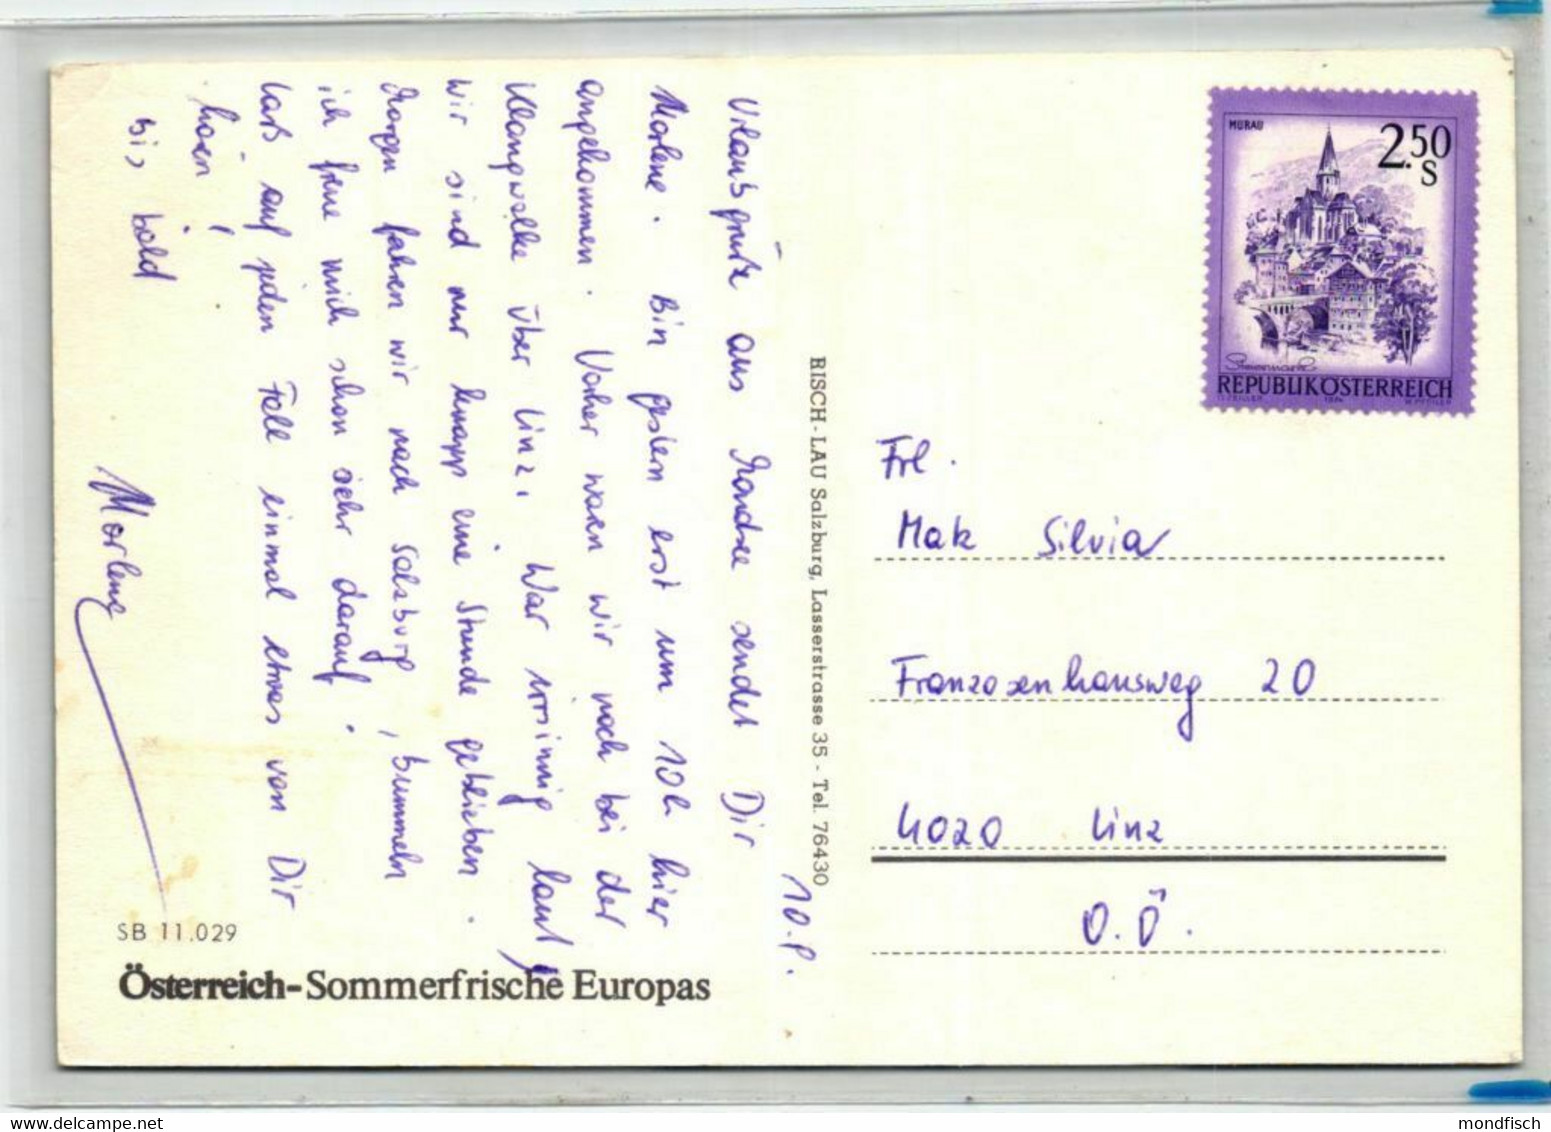 10.P.
Urlaubsgrüße aus Mondsee sendet Dir
Marlene. Bin gestern erst um 10h hier
angekommen. Vorher waren wir noch bei der
Klangwolke über Linz. War irrsinnig laut,
wir sind nur knapp eine Stunde geblieben.
Morgen fahren wir nach Salzburg, bummeln
ich freue mich schon sehr darauf.
laß auf jeden Fall einmal etwas von Dir
hören!
bis bald
Marlene
SB 11.029
Österreich-Sommerfrische Europas
RISCH-LAU Salzburg, Lasserstrasse 35 - Tel. 76430
MURAU
2.50
S
REPUBLIK ÖSTERREICH
Frl.
Mak Silvia
Franzosenhausweg 20
4020 Linz
O.Ö.
mondfisch